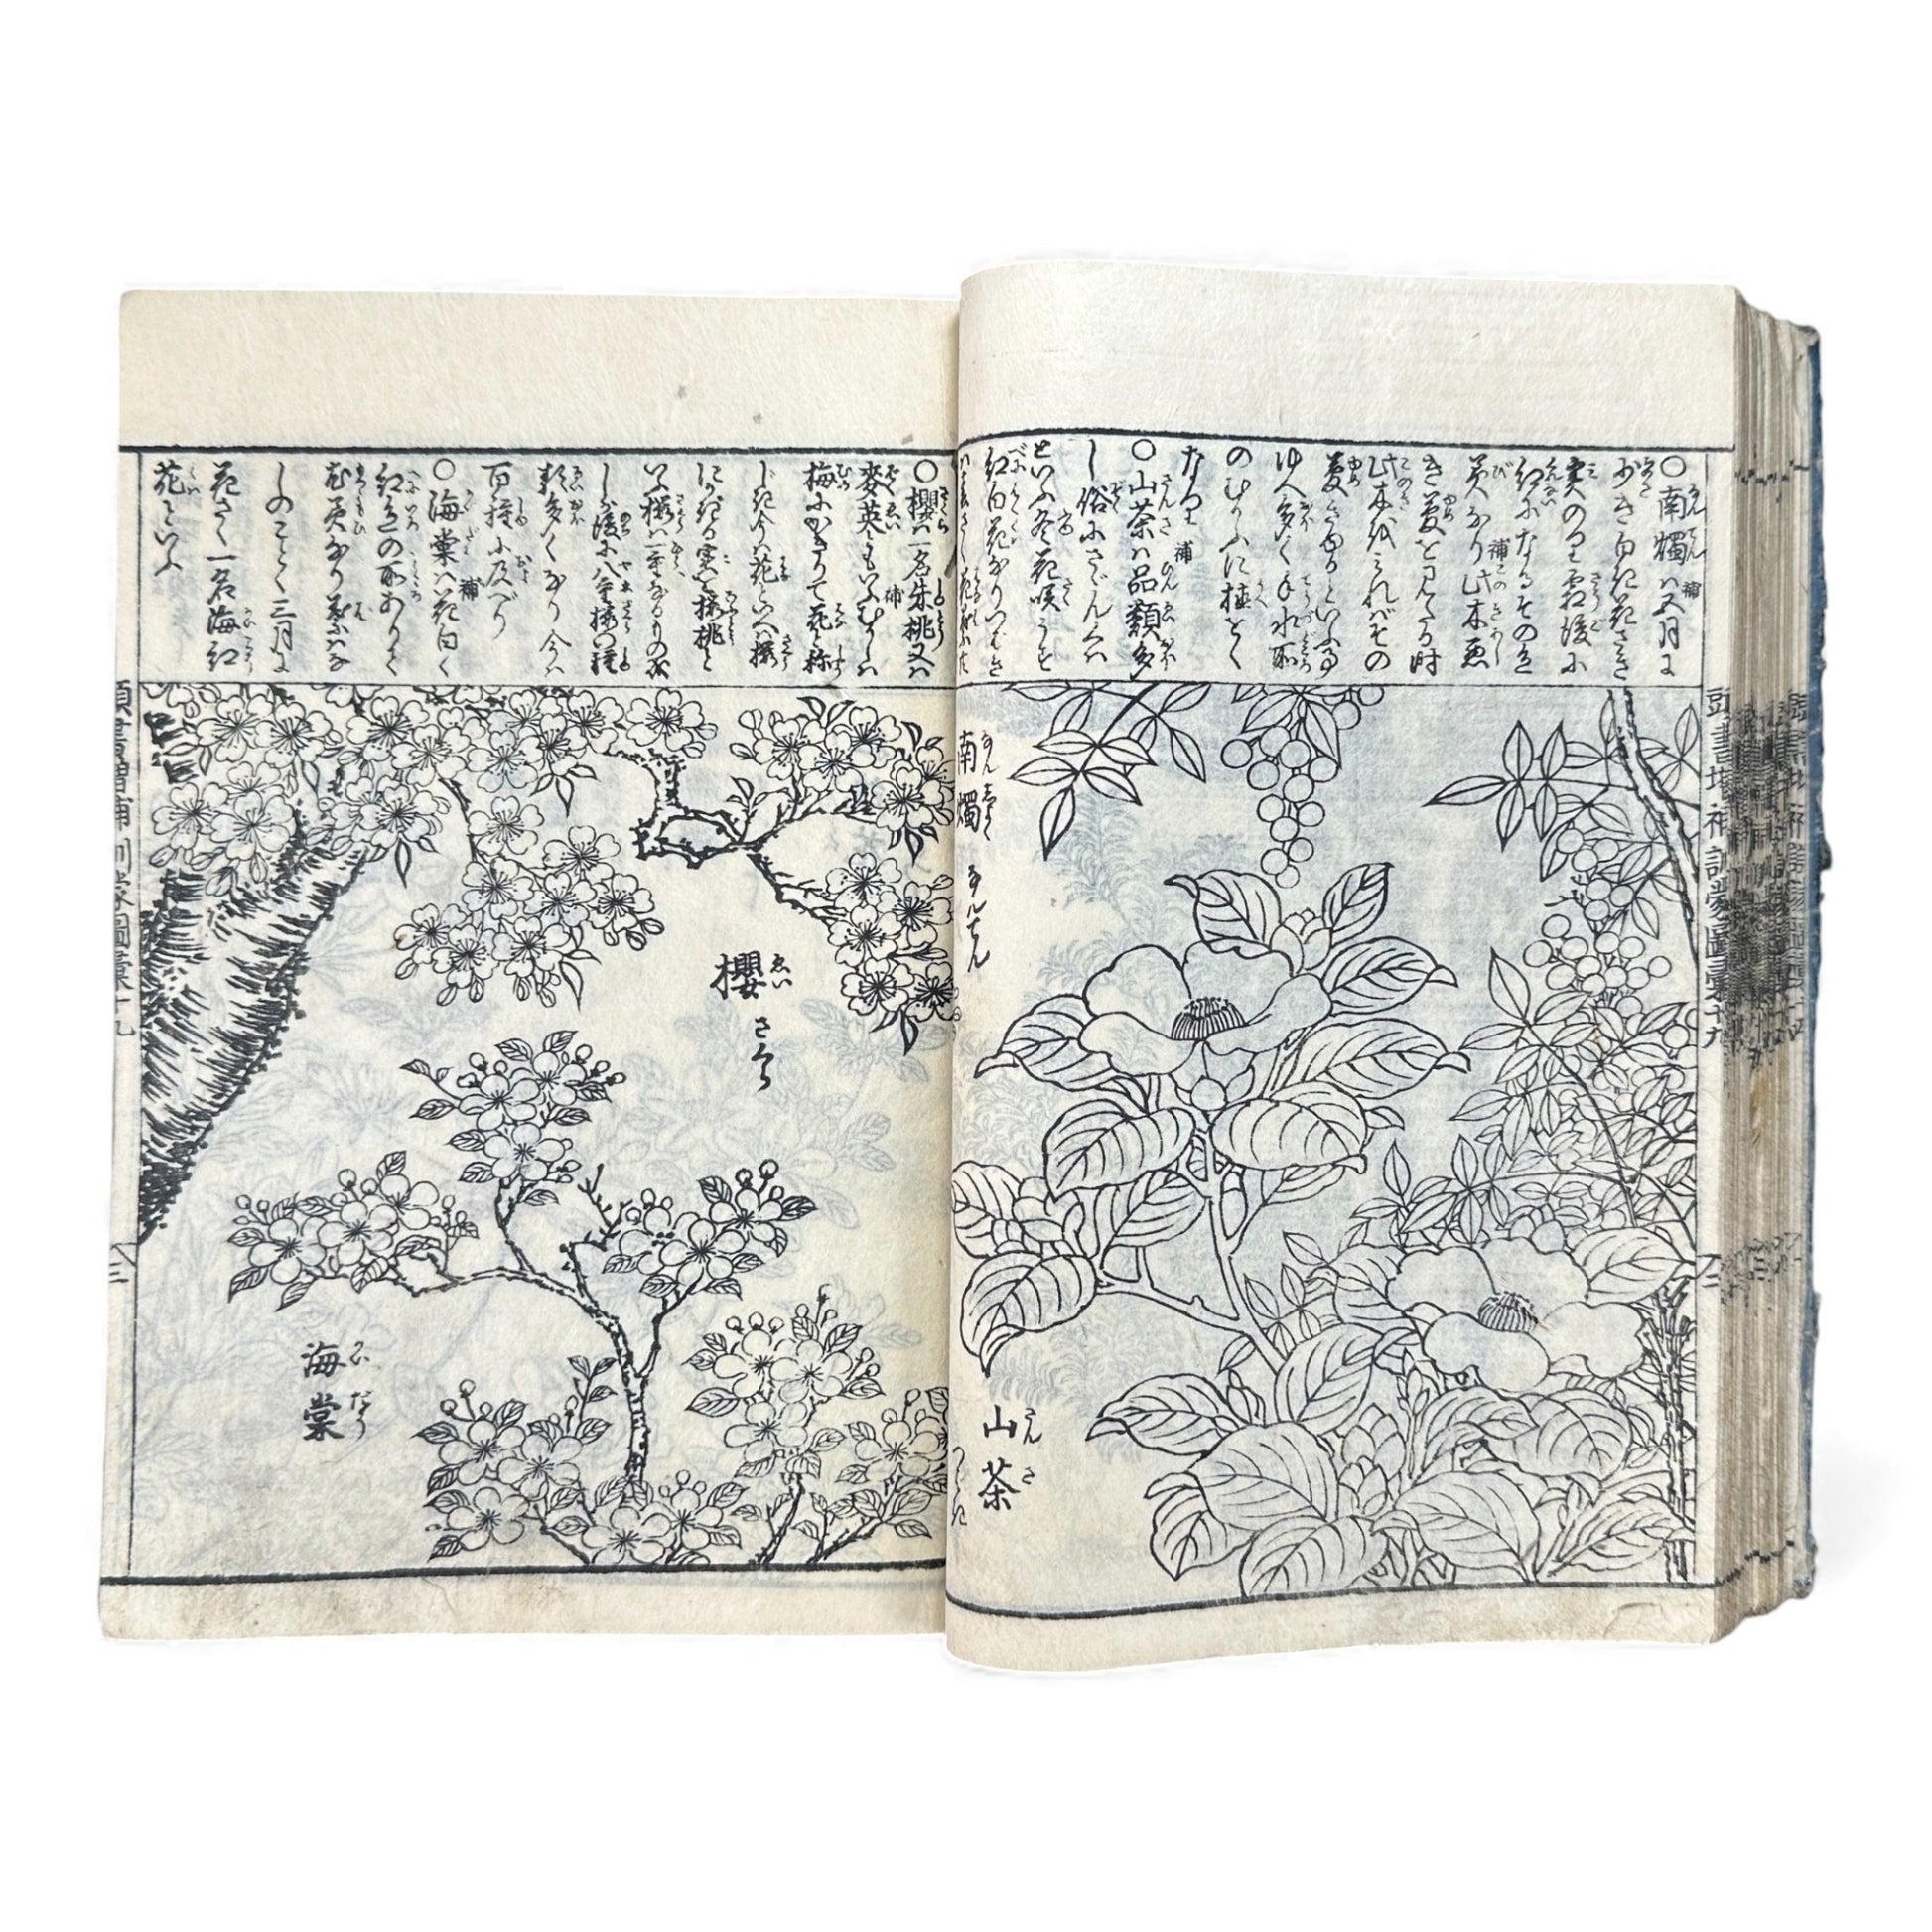 ○南燭ハ五月に
少き白き花さき
実のる霜後に
紅になるその色
美なり補此木悪
き夢を見たる時
此木
夢きゆるといふ事
ゆへ多く手水所
のむかふに植をく
なり補
○山茶ハ品類多
し俗にさざんくハ
といふ冬花咲うす
紅白花ありつばき
南燭 なんしよく なんてん
山茶 さんさ つばき
頭書増補訓蒙圖彙十九
○櫻ハ一名朱桃又ハ
麥英ともいふむかしハ
梅にかぎりて花と称
じき今ハ花といへバ櫻
にかぎる実を櫻桃と
いふ櫻ハ一重なるもの也
しが後に八重櫻の種
類多くなり今ハ
百種に及べり
○海棠ハ花白く
紅色の所ありて
甚美なり葉ハな
しのごとく三月に
花さく一名海紅
花といふ
櫻 ゑい さくら
海棠 かいだう
頭書増補訓蒙圖彙十九